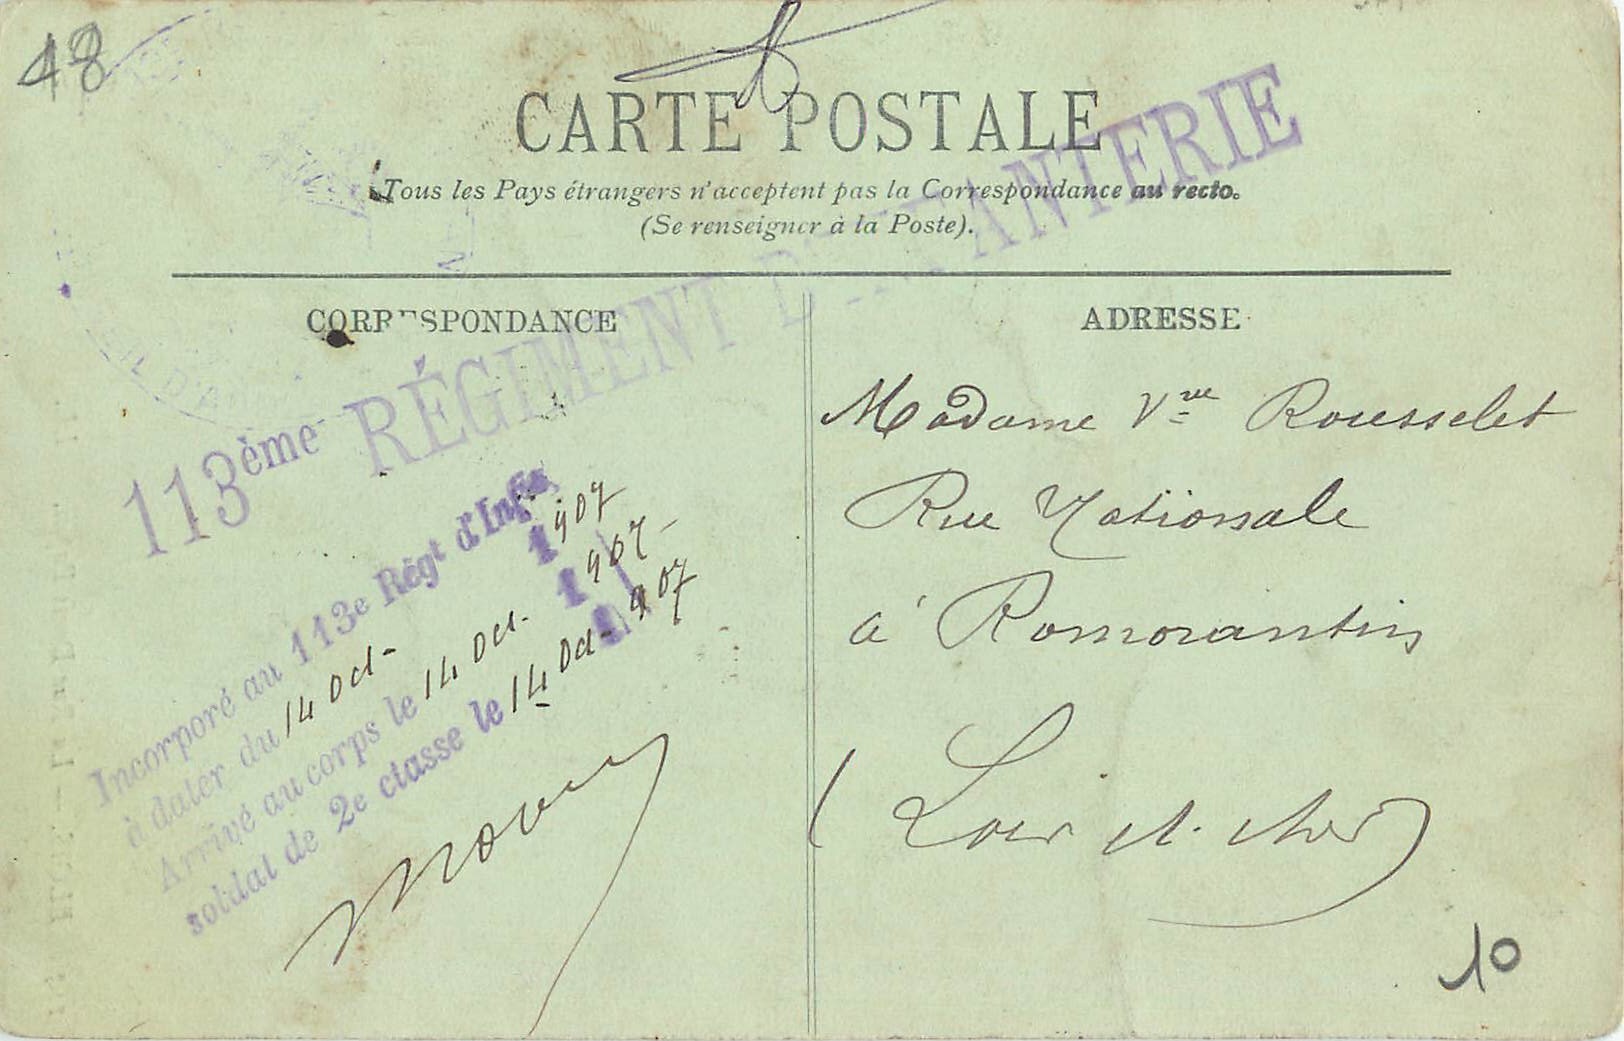 48
CARTE POSTALE
Tous les Pays étrangers n'acceptent pas la Correspondance au recto.
(Se renseigner à la Poste).
CORRESPONDANCE
113ème RÉGIMENT D'INFANTERIE
Incorporé au 113e Régt d'Infie
à dater du 14 Oct- 1907
Arrivé au corps le 14 Oct. 1907-
soldat de 2e classe le 14 Oct- 1907
ADRESSE
Madame Vve Rousselet
Rue Nationale
à Romorantin
(Loir et Cher)
10